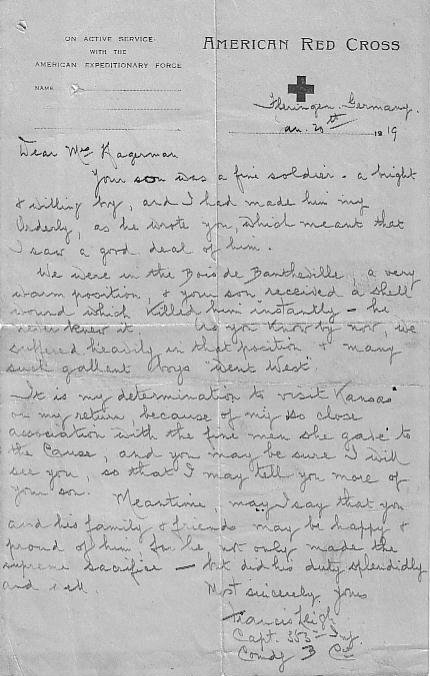 ON ACTIVE SERVICE
WITH THE
AMERICAN EXPEDITIONARY FORCE
AMERICAN RED CROSS
NAME
Germany.
Jan. 20th 1919
Dear Mrs Kagerman
Your son was a fine soldier - a bright
& willing boy, and I had made him my
Orderly, as he wrote you, which meant that
I saw a good deal of him.
We were in the Bois de Bantheville, a very
warm position, & your son received a shell
wound which killed him instantly - he
never knew it. As you know by now, we
suffered heavily in that position & many
such gallant boys "went West".
It is my determination to visit Kansas
on my return, because of my so close
association with the fine men she gave to
the Cause, and you may be sure I will
see you, so that I may tell you more of
your son. Meantime, may I say that you
and his family & friends may be happy &
proud of him, for he not only made the
supreme sacrifice - but did his duty splendidly
and well.
Most sincerely yours
Francis Leigh
Capt. 353rd Inf.
Comdg B Co